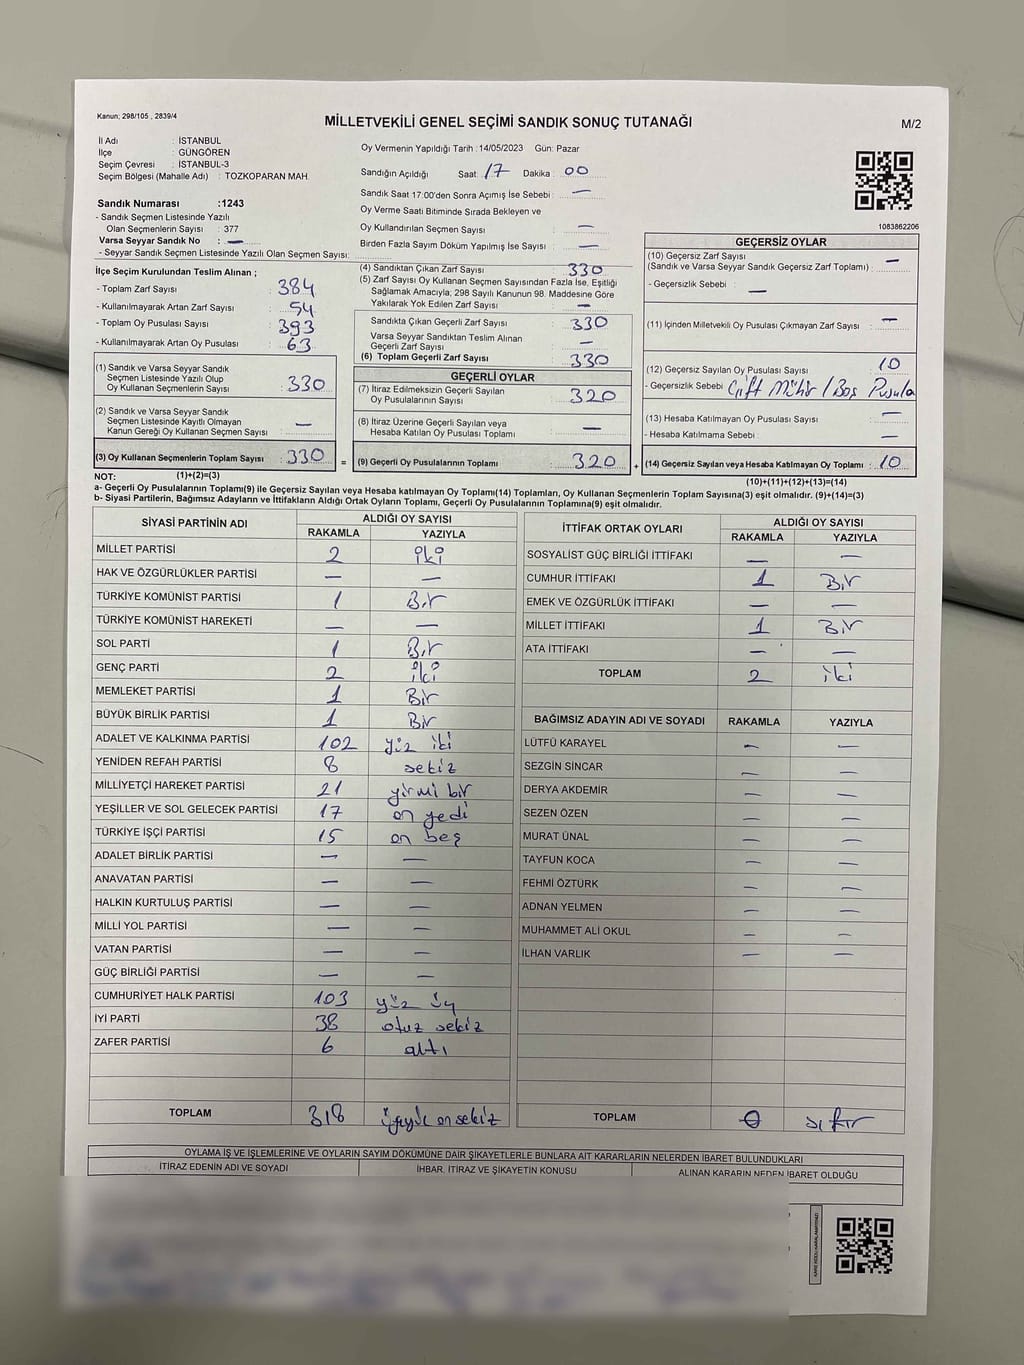 Kanun; 298/105 , 2839/4
MİLLETVEKİLİ GENEL SEÇİMİ SANDIK SONUÇ TUTANAĞI
M/2
İl Adı : İSTANBUL
İlçe : GÜNGÖREN
Seçim Çevresi : İSTANBUL-3
Seçim Bölgesi (Mahalle Adı) : TOZKOPARAN MAH.
Sandık Numarası :1243
- Sandık Seçmen Listesinde Yazılı
Olan Seçmenlerin Sayısı : 377
Varsa Seyyar Sandık No : —
- Seyyar Sandık Seçmen Listesinde Yazılı Olan Seçmen Sayısı:
Oy Vermenin Yapıldığı Tarih :14/05/2023 Gün: Pazar
Sandığın Açıldığı Saat 17 Dakika 00
Sandık Saat 17:00'den Sonra Açımış İse Sebebi : —
Oy Verme Saati Bitiminde Sırada Bekleyen ve
Oy Kullandırılan Seçmen Sayısı : —
Birden Fazla Sayım Döküm Yapılmış İse Sayısı : —
1083862206
İlçe Seçim Kurulundan Teslim Alınan ;
- Toplam Zarf Sayısı : 384
- Kullanılmayarak Artan Zarf Sayısı : 54
- Toplam Oy Pusulası Sayısı : 393
- Kullanılmayarak Artan Oy Pusulası : 63
(1) Sandık ve Varsa Seyyar Sandık
Seçmen Listesinde Yazılı Olup
Oy Kullanan Seçmenlerin Sayısı : 330
(2) Sandık ve Varsa Seyyar Sandık
Seçmen Listesinde Kayıtlı Olmayan
Kanun Gereği Oy Kullanan Seçmen Sayısı : —
(3) Oy Kullanan Seçmenlerin Toplam Sayısı : 330
(1)+(2)=(3)
(4) Sandıktan Çıkan Zarf Sayısı : 330
(5) Zarf Sayısı Oy Kullanan Seçmen Sayısından Fazla İse, Eşitliği
Sağlamak Amacıyla, 298 Sayılı Kanunun 98. Maddesine Göre
Yakılarak Yok Edilen Zarf Sayısı : —
Sandıkta Çıkan Geçerli Zarf Sayısı : 330
Varsa Seyyar Sandıktan Teslim Alınan
Geçerli Zarf Sayısı : —
(6) Toplam Geçerli Zarf Sayısı : 330
GEÇERLİ OYLAR
(7) İtiraz Edilmeksizin Geçerli Sayılan
Oy Pusulalarının Sayısı : 320
(8) İtiraz Üzerine Geçerli Sayılan veya
Hesaba Katılan Oy Pusulası Toplamı : —
= (9) Geçerli Oy Pusulalarının Toplamı : 320 +
GEÇERSİZ OYLAR
(10) Geçersiz Zarf Sayısı
(Sandık ve Varsa Seyyar Sandık Geçersiz Zarf Toplamı) : —
- Geçersizlik Sebebi : —
(11) İçinden Milletvekili Oy Pusulası Çıkmayan Zarf Sayısı : —
(12) Geçersiz Sayılan Oy Pusulası Sayısı : 10
- Geçersizlik Sebebi : Çift Mühür / Boş Pusula
(13) Hesaba Katılmayan Oy Pusulası Sayısı : —
- Hesaba Katılmama Sebebi : —
(14) Geçersiz Sayılan veya Hesaba Katılmayan Oy Toplamı : 10
(10)+(11)+(12)+(13)=(14)
NOT:
a- Geçerli Oy Pusulalarının Toplamı(9) ile Geçersiz Sayılan veya Hesaba katılmayan Oy Toplamı(14) Toplamları, Oy Kullanan Seçmenlerin Toplam Sayısına(3) eşit olmalıdır. (9)+(14)=(3)
b- Siyasi Partilerin, Bağımsız Adayların ve İttifakların Aldığı Ortak Oyların Toplamı, Geçerli Oy Pusulalarının Toplamına(9) eşit olmalıdır.
SİYASİ PARTİNİN ADI ALDIĞI OY SAYISI
RAKAMLA YAZIYLA
MİLLET PARTİSİ 2 iki
HAK VE ÖZGÜRLÜKLER PARTİSİ — —
TÜRKİYE KOMÜNİST PARTİSİ 1 Bir
TÜRKİYE KOMÜNİST HAREKETİ — —
SOL PARTİ 1 Bir
GENÇ PARTİ 2 iki
MEMLEKET PARTİSİ 1 Bir
BÜYÜK BİRLİK PARTİSİ 1 Bir
ADALET VE KALKINMA PARTİSİ 102 yüz iki
YENİDEN REFAH PARTİSİ 8 sekiz
MİLLİYETÇİ HAREKET PARTİSİ 21 yirmi bir
YEŞİLLER VE SOL GELECEK PARTİSİ 17 on yedi
TÜRKİYE İŞÇİ PARTİSİ 15 on beş
ADALET BİRLİK PARTİSİ — —
ANAVATAN PARTİSİ — —
HALKIN KURTULUŞ PARTİSİ — —
MİLLİ YOL PARTİSİ — —
VATAN PARTİSİ — —
GÜÇ BİRLİĞİ PARTİSİ — —
CUMHURİYET HALK PARTİSİ 103 yüz üç
İYİ PARTİ 38 otuz sekiz
ZAFER PARTİSİ 6 altı
TOPLAM 318 üçyüz onsekiz
İTTİFAK ORTAK OYLARI ALDIĞI OY SAYISI
RAKAMLA YAZIYLA
SOSYALİST GÜÇ BİRLİĞİ İTTİFAKI — —
CUMHUR İTTİFAKI 1 Bir
EMEK VE ÖZGÜRLÜK İTTİFAKI — —
MİLLET İTTİFAKI 1 Bir
ATA İTTİFAKI — —
TOPLAM 2 iki
BAĞIMSIZ ADAYIN ADI VE SOYADI RAKAMLA YAZIYLA
LÜTFÜ KARAYEL — —
SEZGİN SİNCAR — —
DERYA AKDEMİR — —
SEZEN ÖZEN — —
MURAT ÜNAL — —
TAYFUN KOCA — —
FEHMİ ÖZTÜRK — —
ADNAN YELMEN — —
MUHAMMET ALİ OKUL — —
İLHAN VARLIK — —
TOPLAM 0 sıfır
OYLAMA İŞ VE İŞLEMLERİNE VE OYLARIN SAYIM DÖKÜMÜNE DAİR ŞİKAYETLERLE BUNLARA AİT KARARLARIN NELERDEN İBARET BULUNDUKLARI
İTİRAZ EDENİN ADI VE SOYADI İHBAR, İTİRAZ VE ŞİKAYETİN KONUSU ALINAN KARARIN NEDEN İBARET OLDUĞU